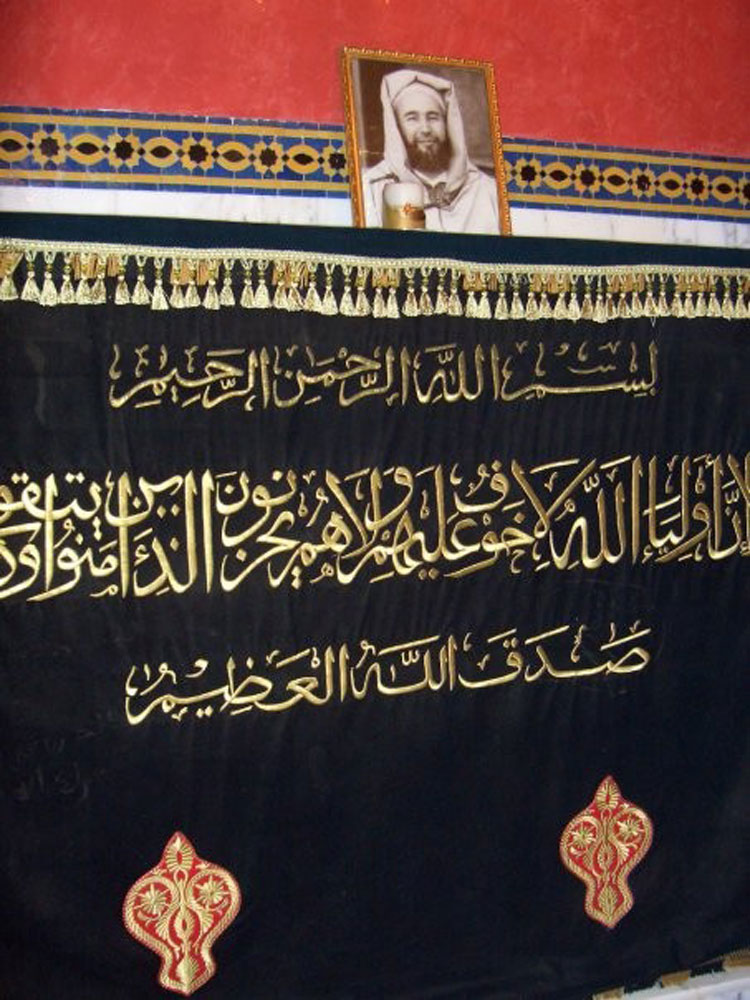 بِسْمِ اللَّهِ الرَّحْمَنِ الرَّحِيمِ
إنَّ أولياء اللَّه لا خوف عليهم ولا هم يحزنون الذين ءامنوا وكانوا يتقون
صَدَقَ اللَّهُ الْعَظِيمُ